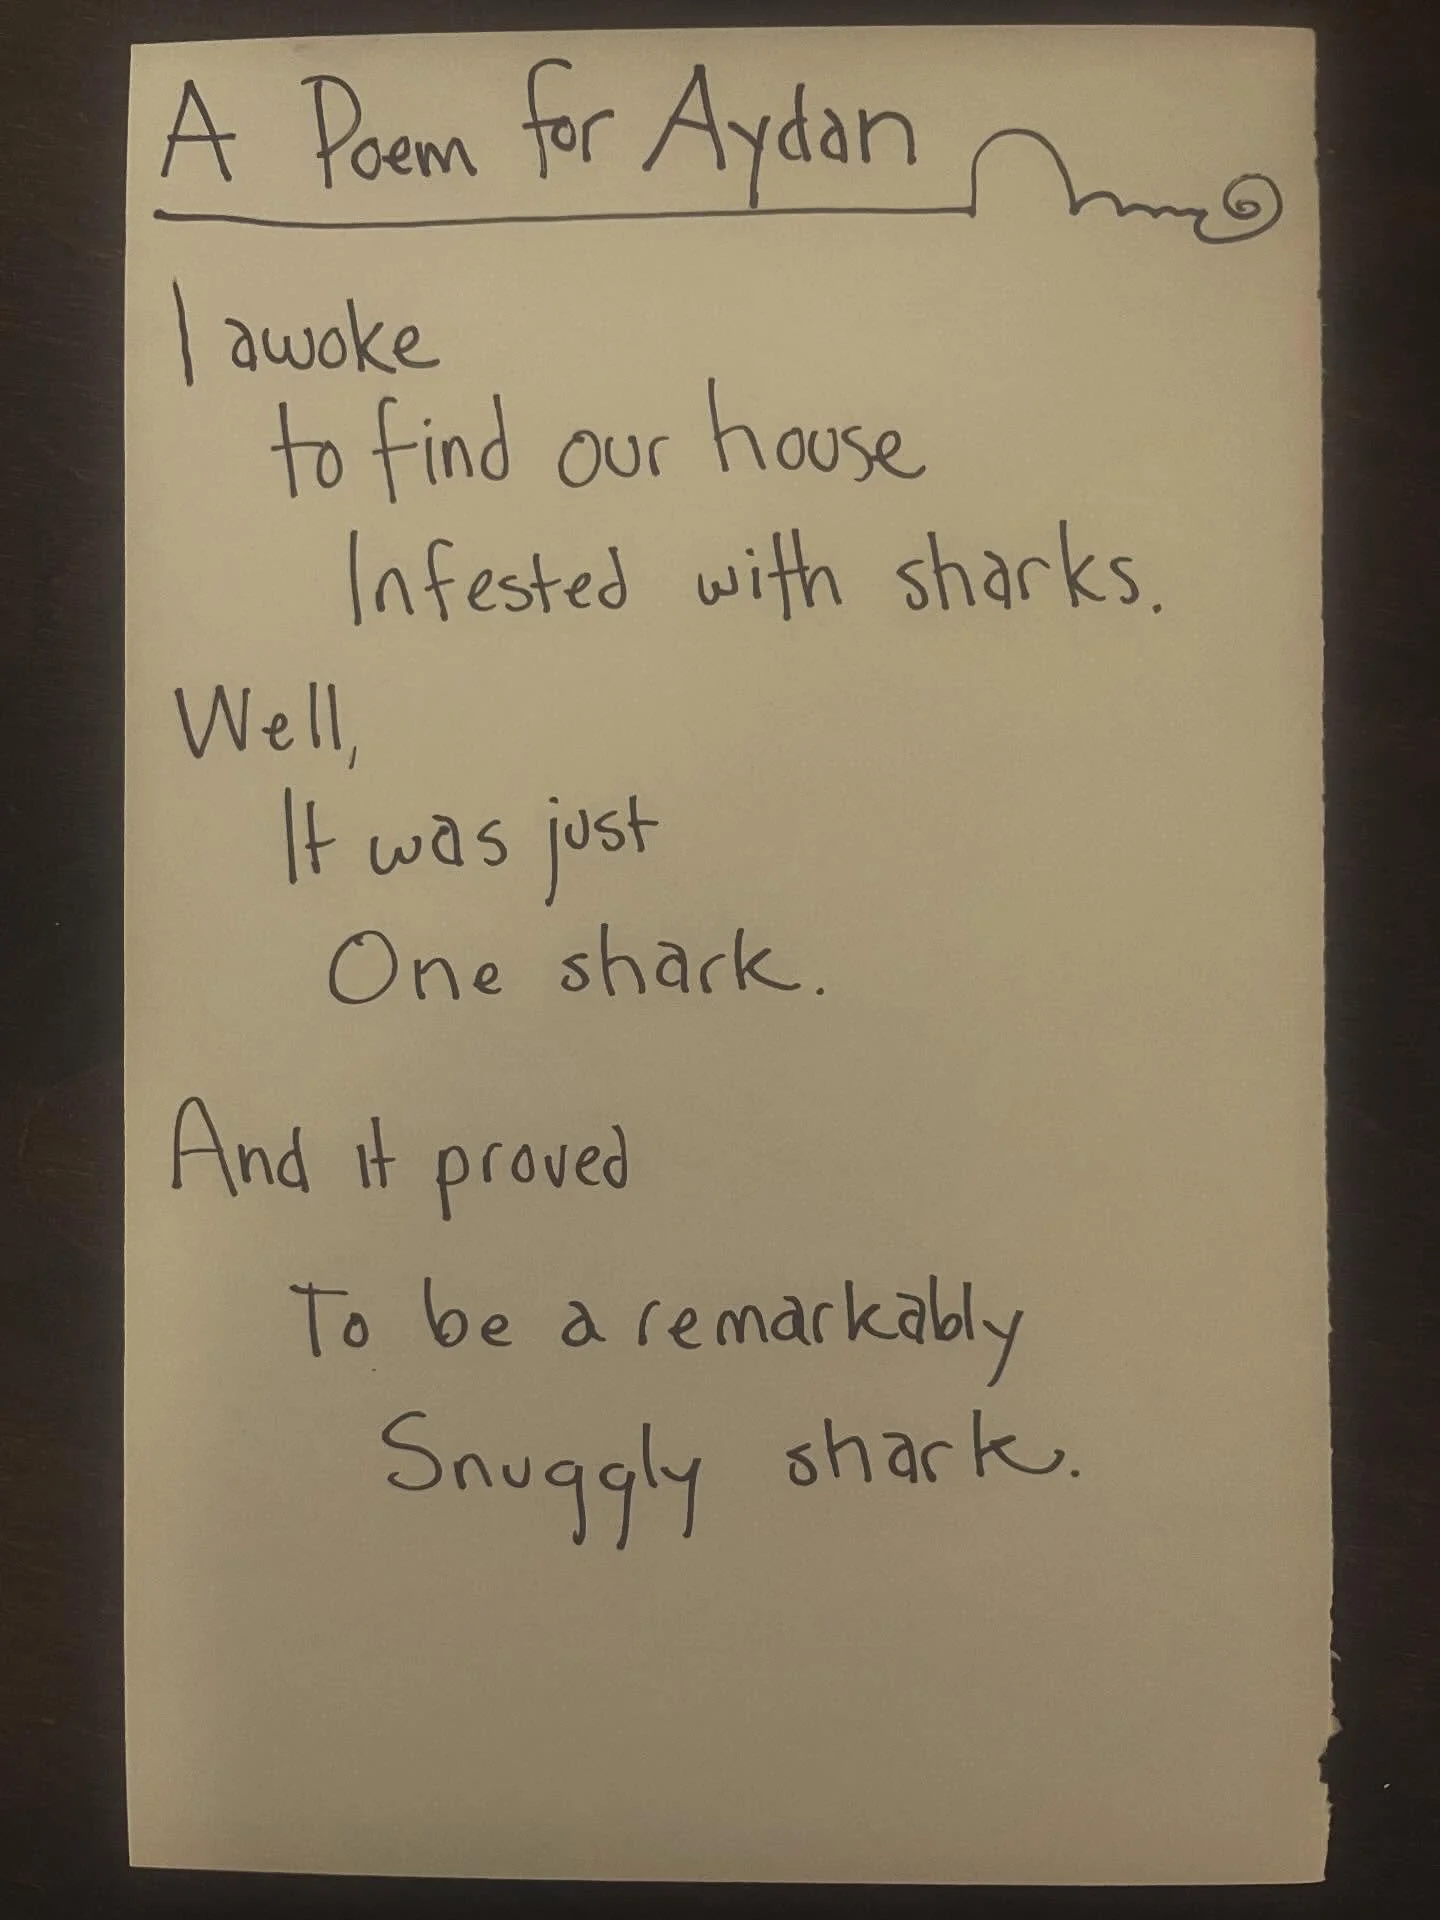 A Poem for Aydan
I awoke
to find our house
Infested with sharks.
Well,
It was just
One shark.
And it proved
To be a remarkably
Snuggly shark.